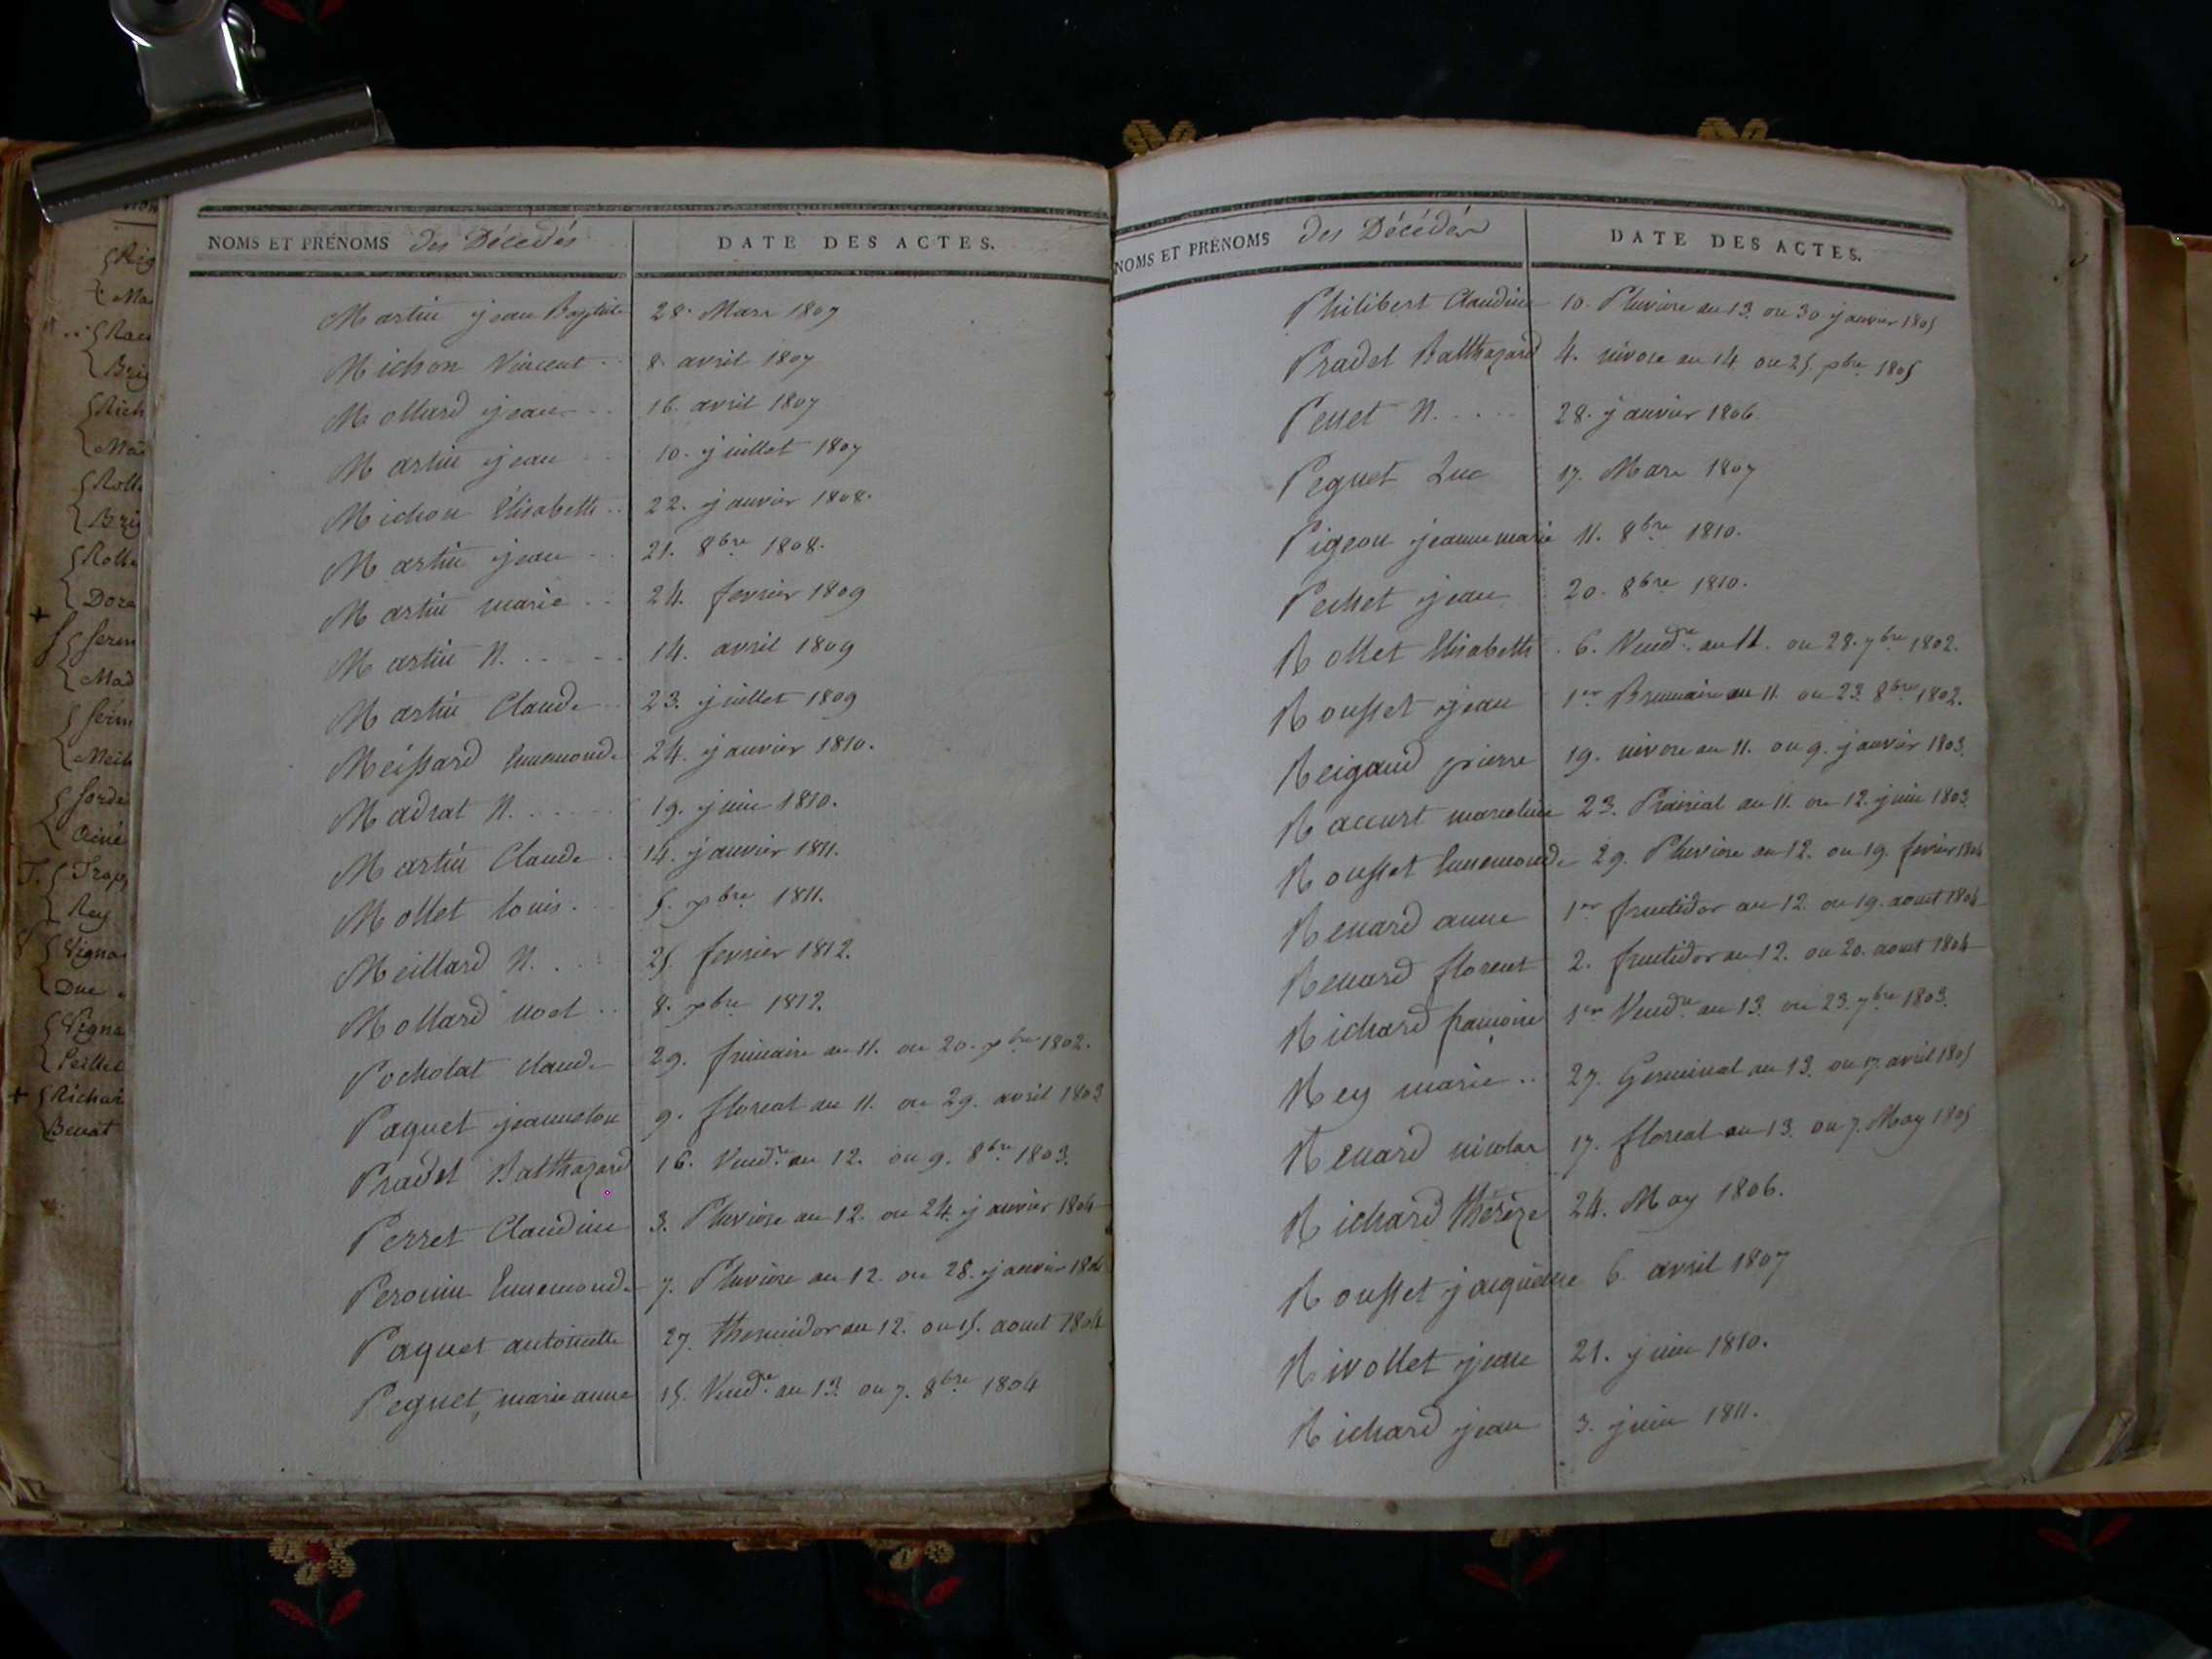 NOMS ET PRÉNOMS des Décedés
DATE DES ACTES.
Martin jean Baptiste 28. Mars 1807
Michon Vincent .. 8. avril 1807
Mollard jean .. 16. avril 1807
Martin jean .. 10. juillet 1807
Michon Elisabeth .. 22. janvier 1808.
Martin jean .. 21. 8bre 1808.
Martin marie .. 24. fevrier 1809
Martin N. ..... 14. avril 1809
Martin Claude .. 23. juillet 1809
Meissard Ennemonde 24. janvier 1810.
Madrat N. ..... 19. juin 1810.
Martin Claude . 14. janvier 1811.
Mollet louis . 5. xbre 1811.
Meillard N. ... 25 fevrier 1812.
Mollard noel .. 8. xbre 1812.
Pocholat claude 29. frimaire an 11. ou 20. xbre 1802.
Paquet jeanneton 9. floreal an 11. ou 29. avril 1803
Pradel Balthazard 16. Vendre an 12. ou 9. 8bre 1803.
Perret Claudine 3. Pluviose an 12. ou 24. janvier 1804
Peronin Ennemonde 7. Pluviose an 12. ou 28. janvier 1804
Paquet antoinette 27. thermidor an 12. ou 15. aout 1804
Peguet, marie anne 15. Vendre an 13. ou 7. 8bre 1804
NOMS ET PRÉNOMS des Décédés
DATE DES ACTES.
Philibert Claudine 10. Pluviose an 13. ou 30. janvier 1805
Pradel Balthazard 4. nivose an 14. ou 25. xbre 1805
N. ..... 28. janvier 1806.
Peguet Luc 17. Mars 1807
Pigeon jeanne marie 11. 8bre 1810.
jean 20. 8bre 1810.
Rollet Elisabeth . 6. Vendre an 11. ou 28. 7bre 1802.
Rousset jean 1er Brumaire an 11. ou 23. 8bre 1802.
Reigaud pierre 19. nivose an 11. ou 9. janvier 1803.
Raccurt 23. Prairial an 11. ou 12. juin 1803.
Rousset Ennemonde 29. Pluviose an 12. ou 19. fevrier 1804
Renard anne 1er fructidor an 12. ou 19. aout 1804
Renard florent 2. fructidor an 12. ou 20. aout 1804
Richard françoise 1er Vendre an 13. ou 23. 7bre 1803.
Rey marie .. 27. Germinal an 13. ou 17. avril 1805
Renard nicolas 17. floreal an 13. ou 7. May 1805
Richard thérèze 24. May 1806.
Rousset jacqueline 6. avril 1807
Rivollet jean 21. juin 1810.
Richard jean 3. juin 1811.